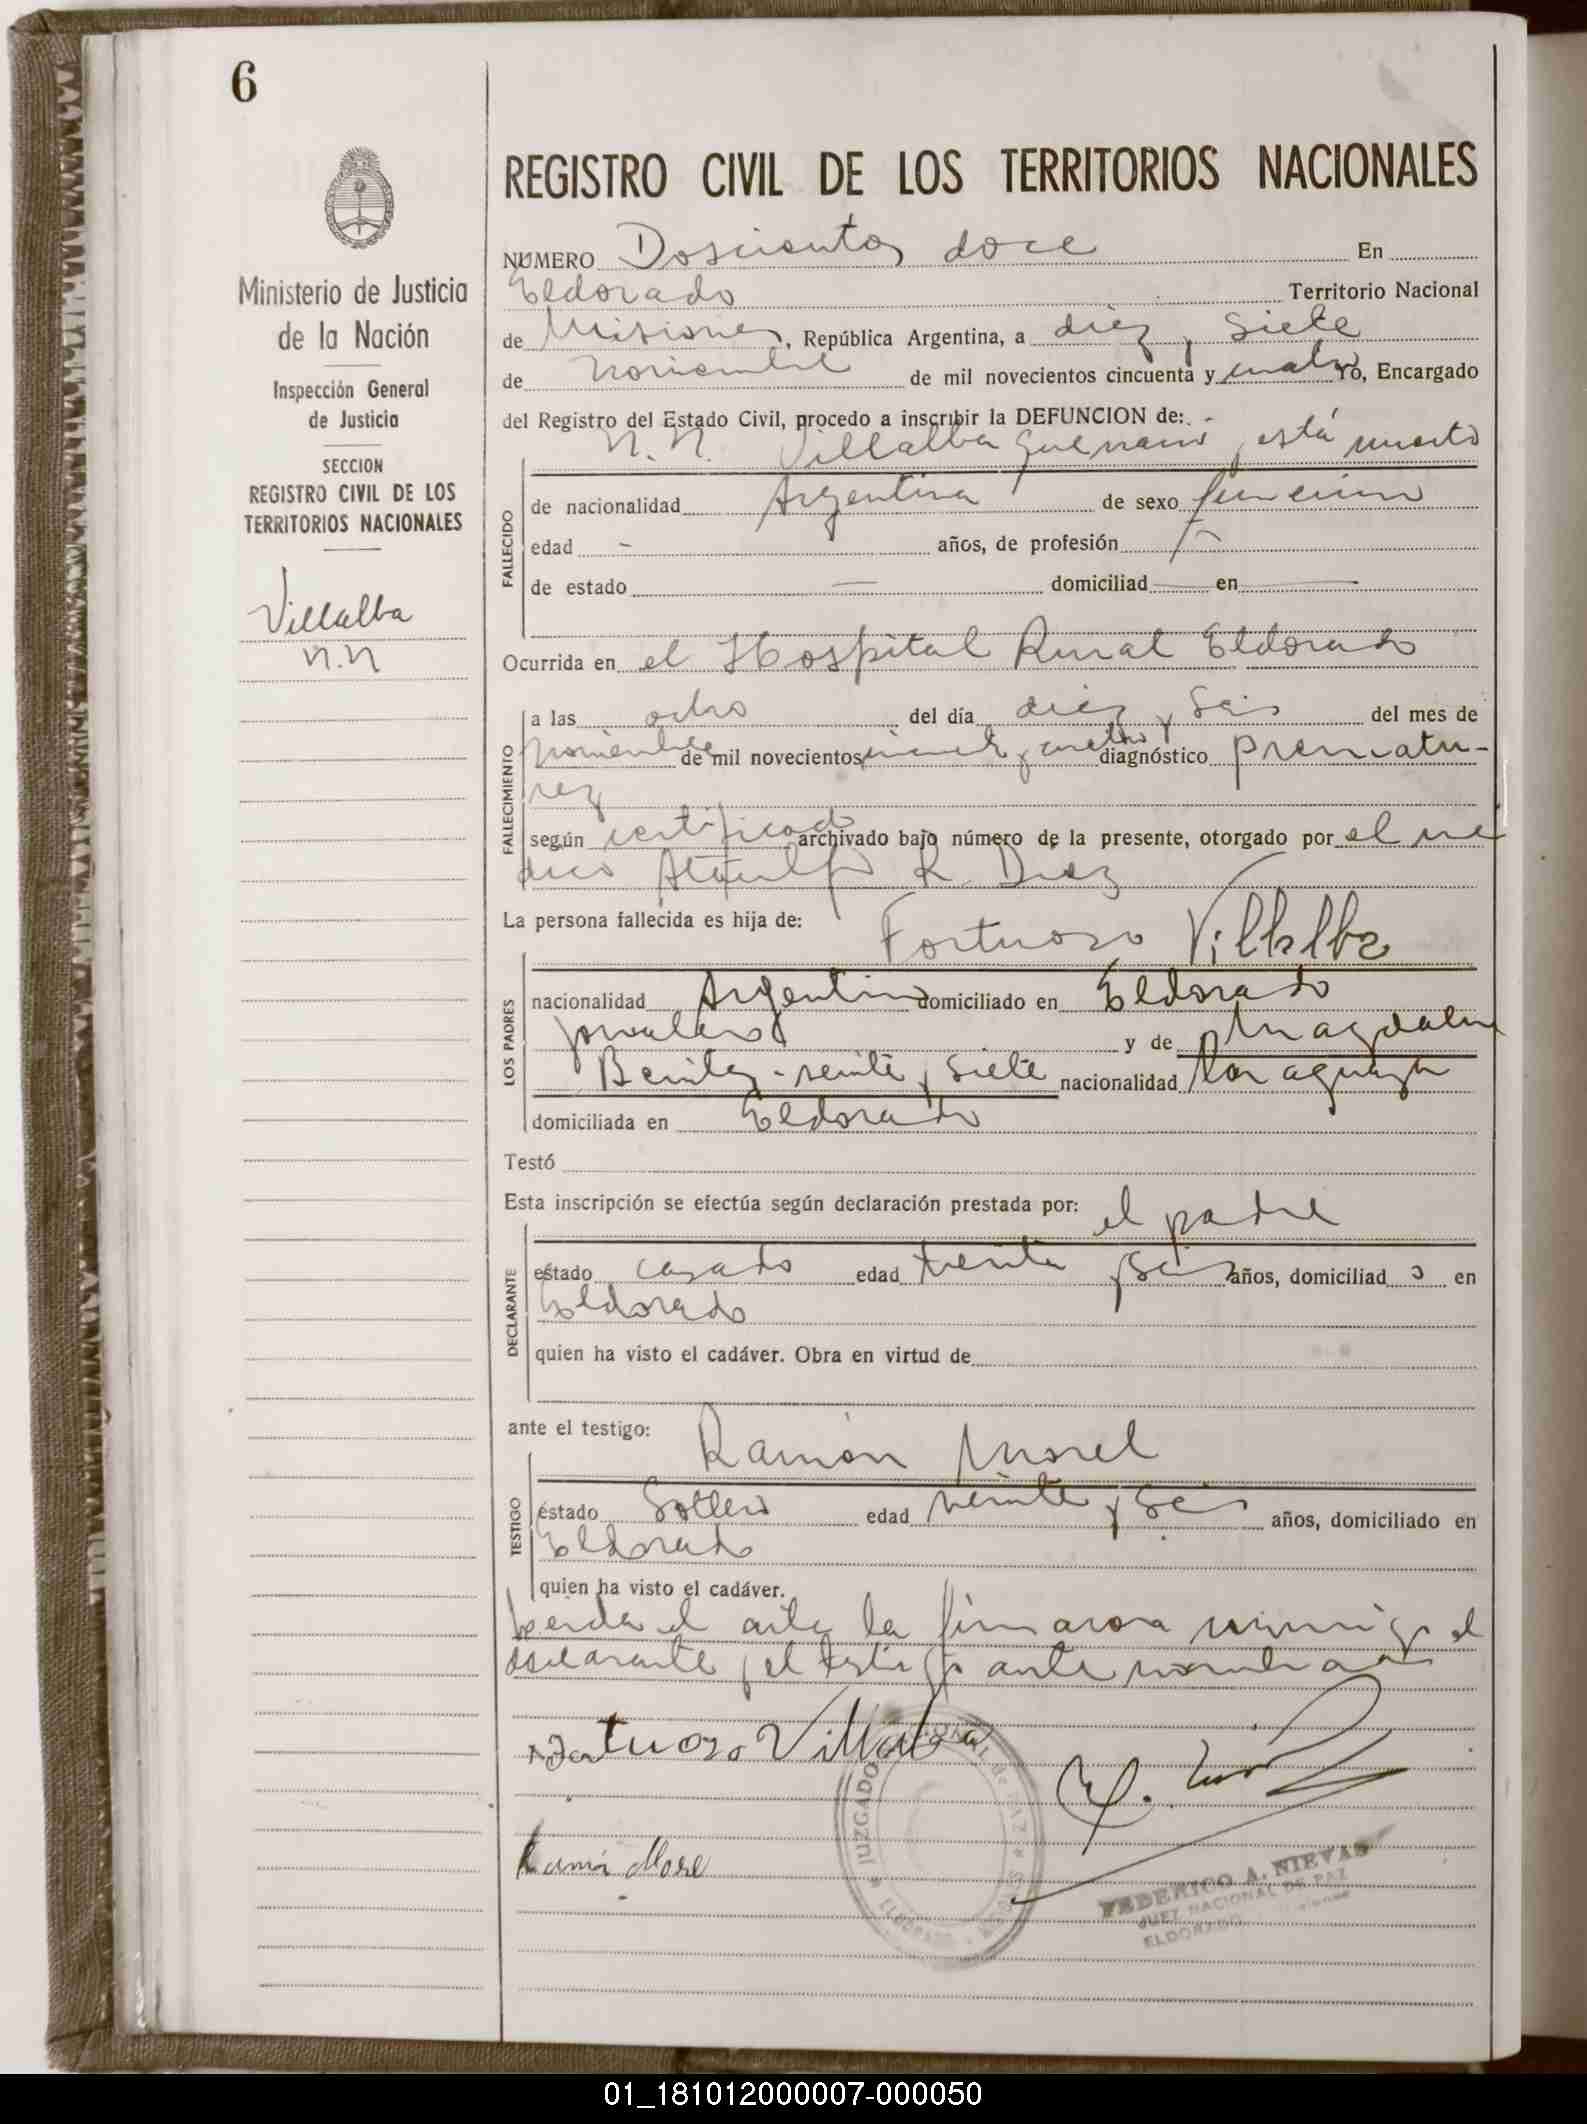 6
REGISTRO CIVIL DE LOS TERRITORIOS NACIONALES
Ministerio de Justicia
de la Nación
Inspección General
de Justicia
SECCION
REGISTRO CIVIL DE LOS
TERRITORIOS NACIONALES
Villalba
N.N
NUMERO Doscientos doce En
Eldorado Territorio Nacional
de Misiones, República Argentina, a diez y siete
de Noviembre de mil novecientos cincuenta y cuatro Yo, Encargado
del Registro del Estado Civil, procedo a inscribir la DEFUNCION de: -
N. N. Villalba que nació está muerto
FALLECIDO
de nacionalidad Argentina de sexo femenino
edad - años, de profesión
de estado — domiciliad — en —
Ocurrida en el Hospital Rural Eldorado
FALLECIMIENTO
a las ocho del día diez y seis del mes de
Noviembre de mil novecientos cincuenta y cuatro diagnóstico prematu-
rez
según certificado archivado bajo número de la presente, otorgado por el mé
dico Ataulfo R. Diaz
La persona fallecida es hija de: Fortuoso Villalba
LOS PADRES
nacionalidad Argentino domiciliado en Eldorado
jornalero y de Magdalena
Benitez - veinte y siete nacionalidad Paraguaya
domiciliada en Eldorado
Testó
Esta inscripción se efectúa según declaración prestada por: el padre
DECLARANTE
estado casado edad treinta y seis años, domiciliad o en
Eldorado
quien ha visto el cadáver. Obra en virtud de
ante el testigo: Ramón Morel
TESTIGO
estado Soltero edad veinte y seis años, domiciliado en
Eldorado
quien ha visto el cadáver.
Leida el acta la firmaron conmigo el
declarante y el testigo ante nombrados
Fortuoso Villalba
Ramón Morel
JUZGADO NACIONAL DE PAZ
ELDORADO - MISIONES
FEDERICO A. NIEVAS
JUEZ NACIONAL DE PAZ
ELDORADO - Misiones
01_181012000007-000050